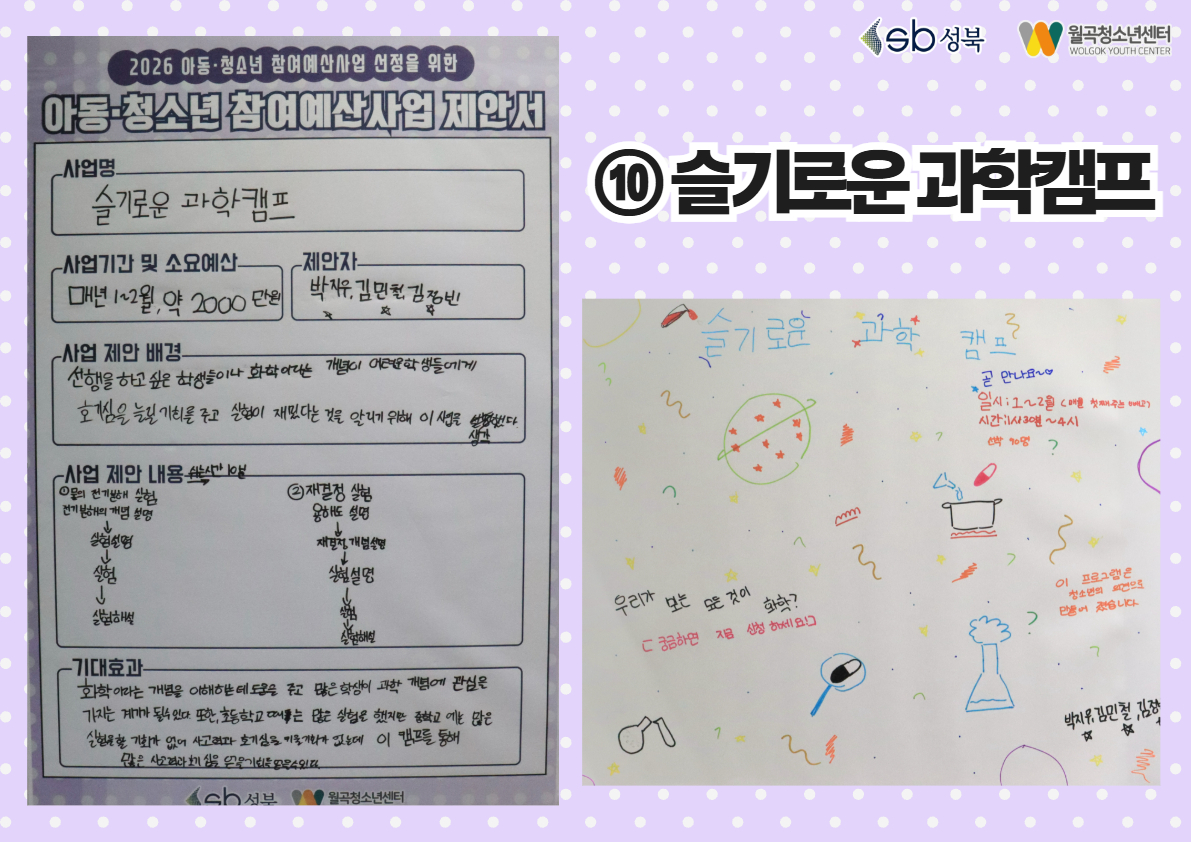 sb성북
월곡청소년센터
WOLGOK YOUTH CENTER
2026 아동·청소년 참여예산사업 선정을 위한
아동·청소년 참여예산사업 제안서
사업명
슬기로운 과학캠프
사업기간 및 소요예산
매년 1~2월, 약 2000만원
제안자
박지유, 김민철, 김정빈
사업 제안 배경
선행을 하고 싶은 학생들이나 화학이라는 개념이 어려운 학생들에게
호기심을 늘릴 기회를 주고 실험이 재밌다는 것을 알리기 위해 이 사업을
생각
사업 제안 내용
①물의 전기분해 실험
전기분해의 개념 설명
↓
실험설명
↓
실험
↓
실험해설
②재결정 실험
용해도 설명
↓
재결정 개념설명
↓
실험설명
↓
실험
↓
실험해설
기대효과
화학이라는 개념을 이해하는데 도움을 주고 많은 학생이 과학 개념에 관심을
가지는 계기가 될수있다. 또한, 초등학교 때에는 많은 실험을 했지만 중학교 에는 많은
실험을할 기회가 없어 사고력과 호기심을 기를기회가 없는데 이 캠프를 통해
많은 사고력과 호기심을 기회를
sb성북
월곡청소년센터
⑩ 슬기로운 과학캠프
슬기로운 과학 캠프
곧 만나요~♡
일시: 1~2월 (매월 첫째주는 빼고)
시간: 1시30분~4시
선착 90명
우리가 보는 모든 것이 화학?
[궁금하면 지금 신청 하세요!]
이 프로그램은
청소년의 의견으로
만들어 졌습니다.
박지유, 김민철, 김정